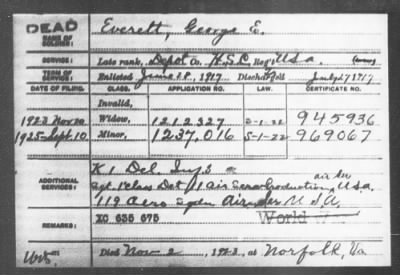 DEAD
NAME OF SOLDIER:
Everett, George E.
SERVICE:
Late rank, Depot Co. H.S.C. Reg't U.S.A.
TERM OF SERVICE:
Enlisted June 28, 1917 Discharged July 27 1917
DATE OF FILING. CLASS. APPLICATION NO. LAW. CERTIFICATE NO.
Invalid,
1923 Nov 20 Widow, 1212327 5-1-22 945936
1925-Sept. 10 Minor, 1237,016 5-1-22 969067
ADDITIONAL SERVICES:
K 1 Del. Inf
air Ser
Sgt 1 Class Det 1 Air Production, U.S.A.
119 Aero Sqdn U S A.
REMARKS:
XC 635 675
World
Died Nov 2, 1923, at Norfolk, Va